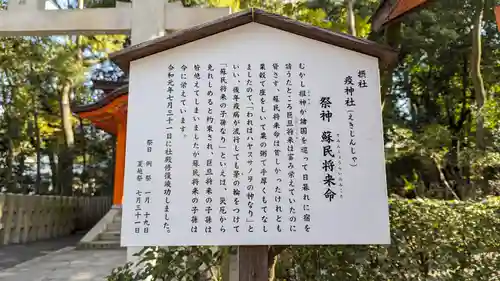 摂社
疫神社(えきじんじゃ)
祭神 蘇民将来命
むかし祖神が諸国を巡って日暮れに宿を
請うたところ巨旦将来は富み栄えていたのに
貸さず、蘇民将来命は貧しかったけれども
粟殻で座をしいて粟の粥で手厚くもてなし
ましたので「われはハヤスサノヲの神なり」と
いい、後年疫病が流行しても茅の輪をつけて
「蘇民将来の子孫なり」といえば、災厄から
免れしめると約束され、巨旦将来の子孫は
皆絶えてしまいましたが蘇民将来の子孫は
今に栄えています。
令和元年七月三十一日に社殿修復竣功しました。
祭日 例祭 一月 十九日
夏越祭 七月三十一日